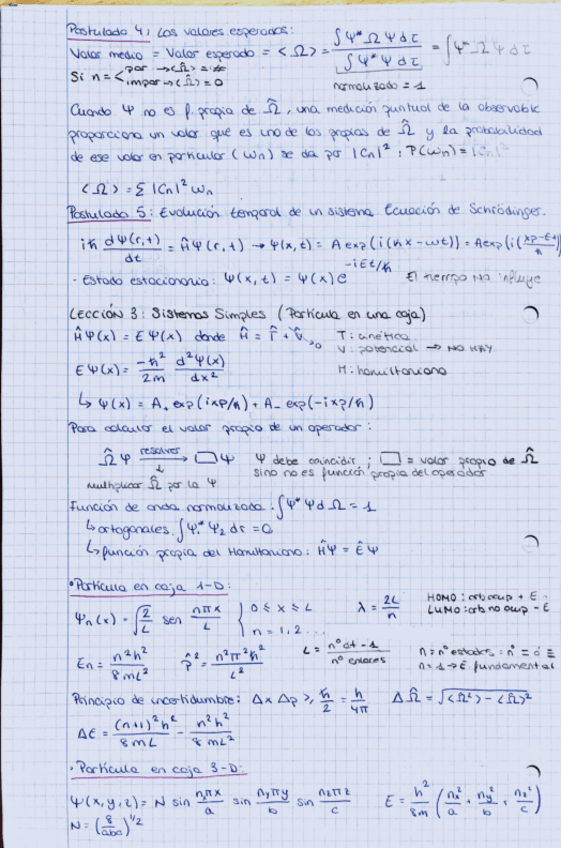 Postulado 4: Los valores esperados:
Valor medio = Valor esperado = <Ω> = ∫Ψ* Ω Ψ dτ / ∫Ψ* Ψ dτ = ∫Ψ* Ω Ψ dτ
Si n = < par → <Ω> =
impar → <Ω> = 0
normalizado = 1
Cuando Ψ no es f. propia de Ω̂, una medición puntual de la observable
proporciona un valor que es uno de los propios de Ω̂ y la probabilidad
de ese valor en particular (ωn) se da por |Cn|²: P(ωn) = |Cn|²
<Ω> = Σ |Cn|² ωn
Postulado 5: Evolución temporal de un sistema. Ecuación de Schrödinger.
iħ dΨ(r,t)/dt = ĤΨ(r,t) → Ψ(x,t) = A exp(i(kx-wt)) = A exp(i(xp-Et)/ħ
· Estado estacionario: Ψ(x,t) = Ψ(x) e^(-iEt/ħ) El tiempo NO influye
LECCIÓN 3: Sistemas Simples (Partícula en una caja)
ĤΨ(x) = EΨ(x) donde Ĥ = T̂ + V̂→0 T: cinética
V: potencial → NO HAY
EΨ(x) = -ħ²/2m d²Ψ(x)/dx² H: hamiltoniano
↳ Ψ(x) = A₊ exp(ixp/ħ) + A₋ exp(-ixp/ħ)
Para calcular el valor propio de un operador:
Ω̂Ψ resolver → ▭Ψ Ψ debe coincidir; ▭ = valor propio de Ω̂
sino no es función propia del operador
multiplicar Ω̂ por la Ψ
Función de onda normalizada: ∫Ψ* Ψ dΩ = 1
↳ ortogonales: ∫Ψ₁* Ψ₂ dr = 0
↳ función propia del Hamiltoniano: ĤΨ = ÊΨ
• Partícula en caja 1-D:
Ψn(x) = √(2/L) sen nπx/L { 0 ≤ x ≤ L λ = 2L/n HOMO: orb ocup + E
n = 1, 2... LUMO: orb no ocup - E
En = n²h²/8mL² p̂² = n²π²ħ²/L² L = / nº enlaces n = nº estados
n = 1 → E. fundamental
Principio de incertidumbre: Δx Δp ≥ ħ/2 = h/4π ΔΩ̂ = √(<Ω̂²> - <Ω̂>²
ΔE = (n+1)²h²/8mL - n²h²/8mL²
· Partícula en caja 3-D:
Ψ(x,y,z) = N sin nxπx/a sin nyπy/b sin nzπz/c E = h²/8m (nx²/a + ny²/b + nz²/c)
N = (8/abc)^1/2